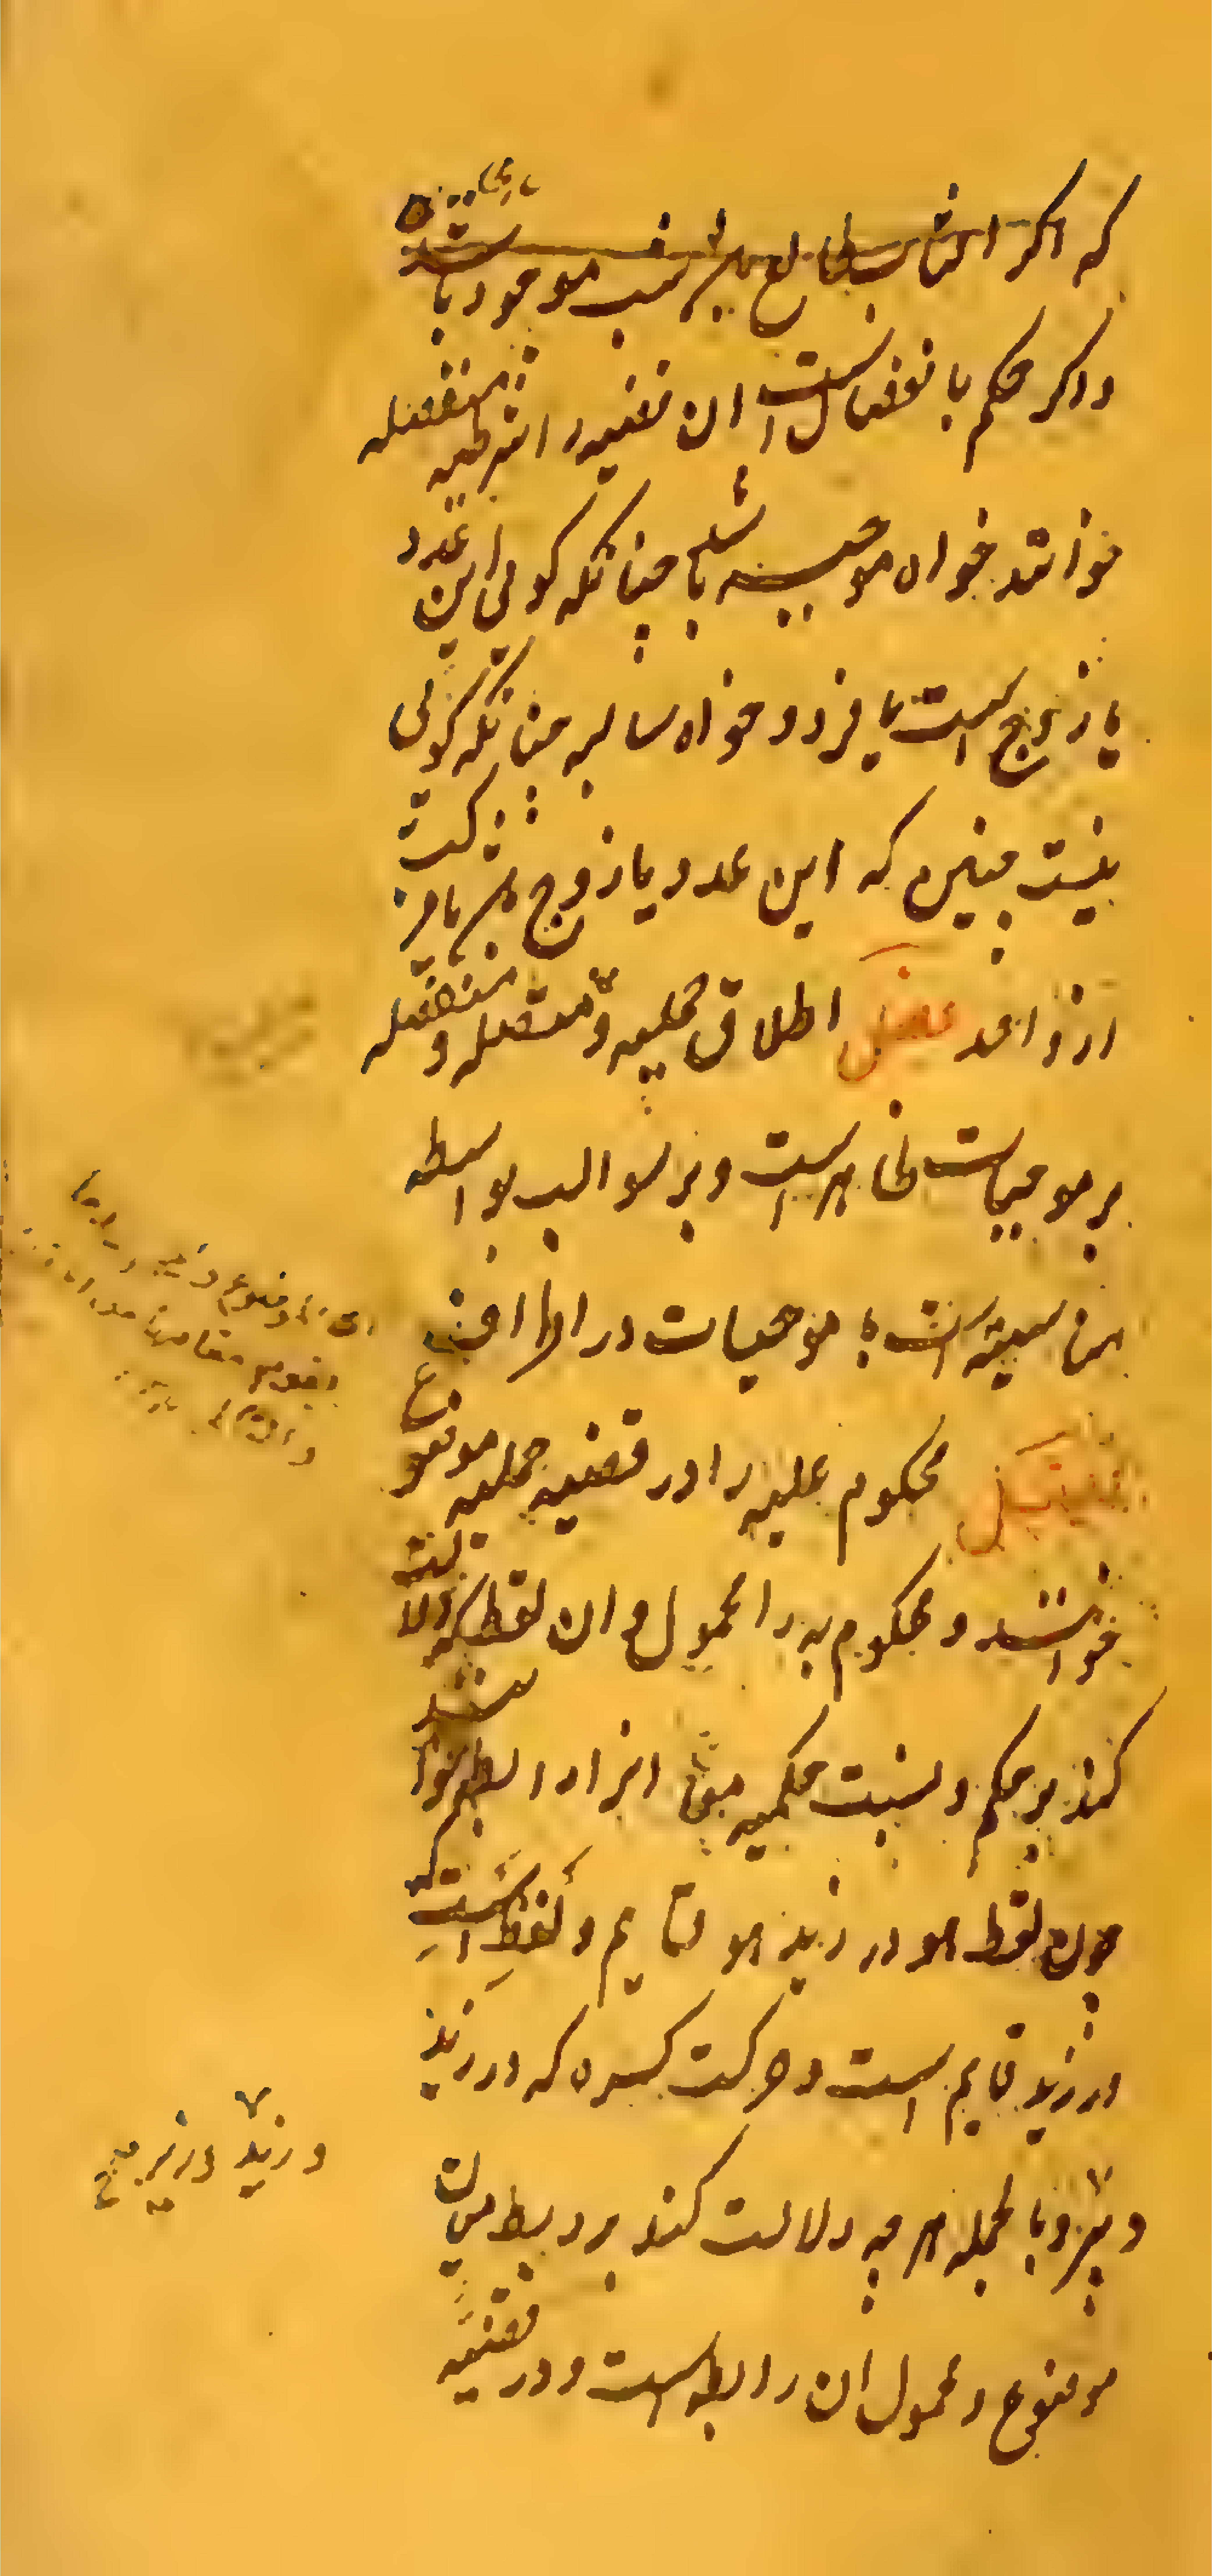 که اگر افتاب طالع باشد شب موجود باشد
و اگر حکم بانفصالست ان قضیه را شرطیه منفصله
خوانند خواه موجبه باشد چنانکه کوئی این عدد
یا زوج است یا فرد و خواه سالبه چنانکه کوئی
نیست چنین که این عدد یا زوج باشد یا مرکب
از واحد فصل اطلاق حملیه و متصله و منفصله
بر موجبات ظاهرست و بر سوالب بواسطه
مناسبتست با موجبات در اطراف
فصل محکوم علیه را در قضیه حملیه موضوع
خوانند و محکوم به را محمول و ان لفظ که دلالت
کند بر حکم و نسبت حکمیه میان ایشان رابطه خوانند
چون لفظ هو در زید هو قایم و لفظ است که
در زید قایم است و حرکت کسره که در زید
دبیر و بالجمله هر چه دلالت کند بر ربط میان
موضوع و محمول ان رابطه است و در قضیه
و زید دبیر